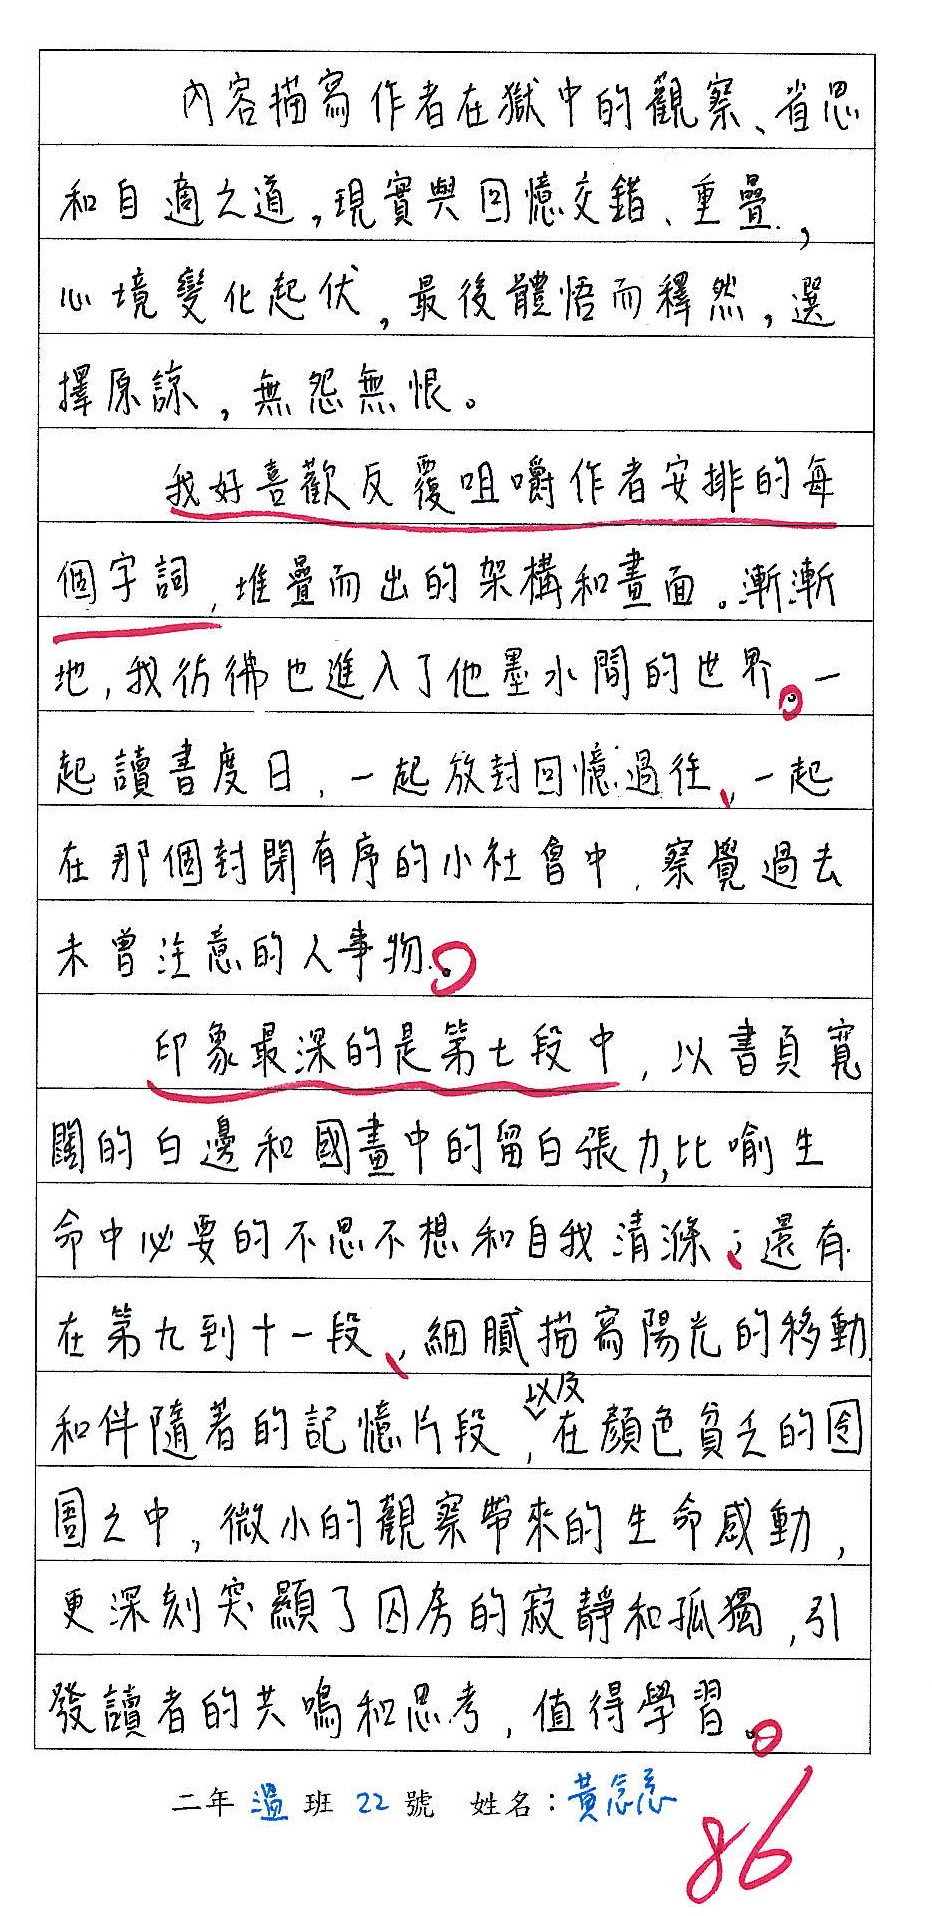 內容描寫作者在獄中的觀察、省思
和自適之道，現實與回憶交錯、重疊，
心境變化起伏，最後體悟而釋然，選
擇原諒，無怨無恨。
我好喜歡反覆咀嚼作者安排的每
個字詞，堆疊而出的架構和畫面。漸漸
地，我彷彿也進入了他墨水間的世界。一
起讀書度日，一起放封回憶過往、一起
在那個封閉有序的小社會中，察覺過去
未曾注意的人事物。
印象最深的是第七段中，以書頁寬
闊的白邊和國畫中的留白張力，比喻生
命中必要的不思不想和自我清滌；還有
在第九到十一段、細膩描寫陽光的移動
和伴隨著的記憶片段，以及在顏色貧乏的囹
圄之中，微小的觀察帶來的生命感動，
更深刻突顯了囚房的寂靜和孤獨，引
發讀者的共鳴和思考，值得學習。
二年 溫 班 22 號 姓名：黃念
86